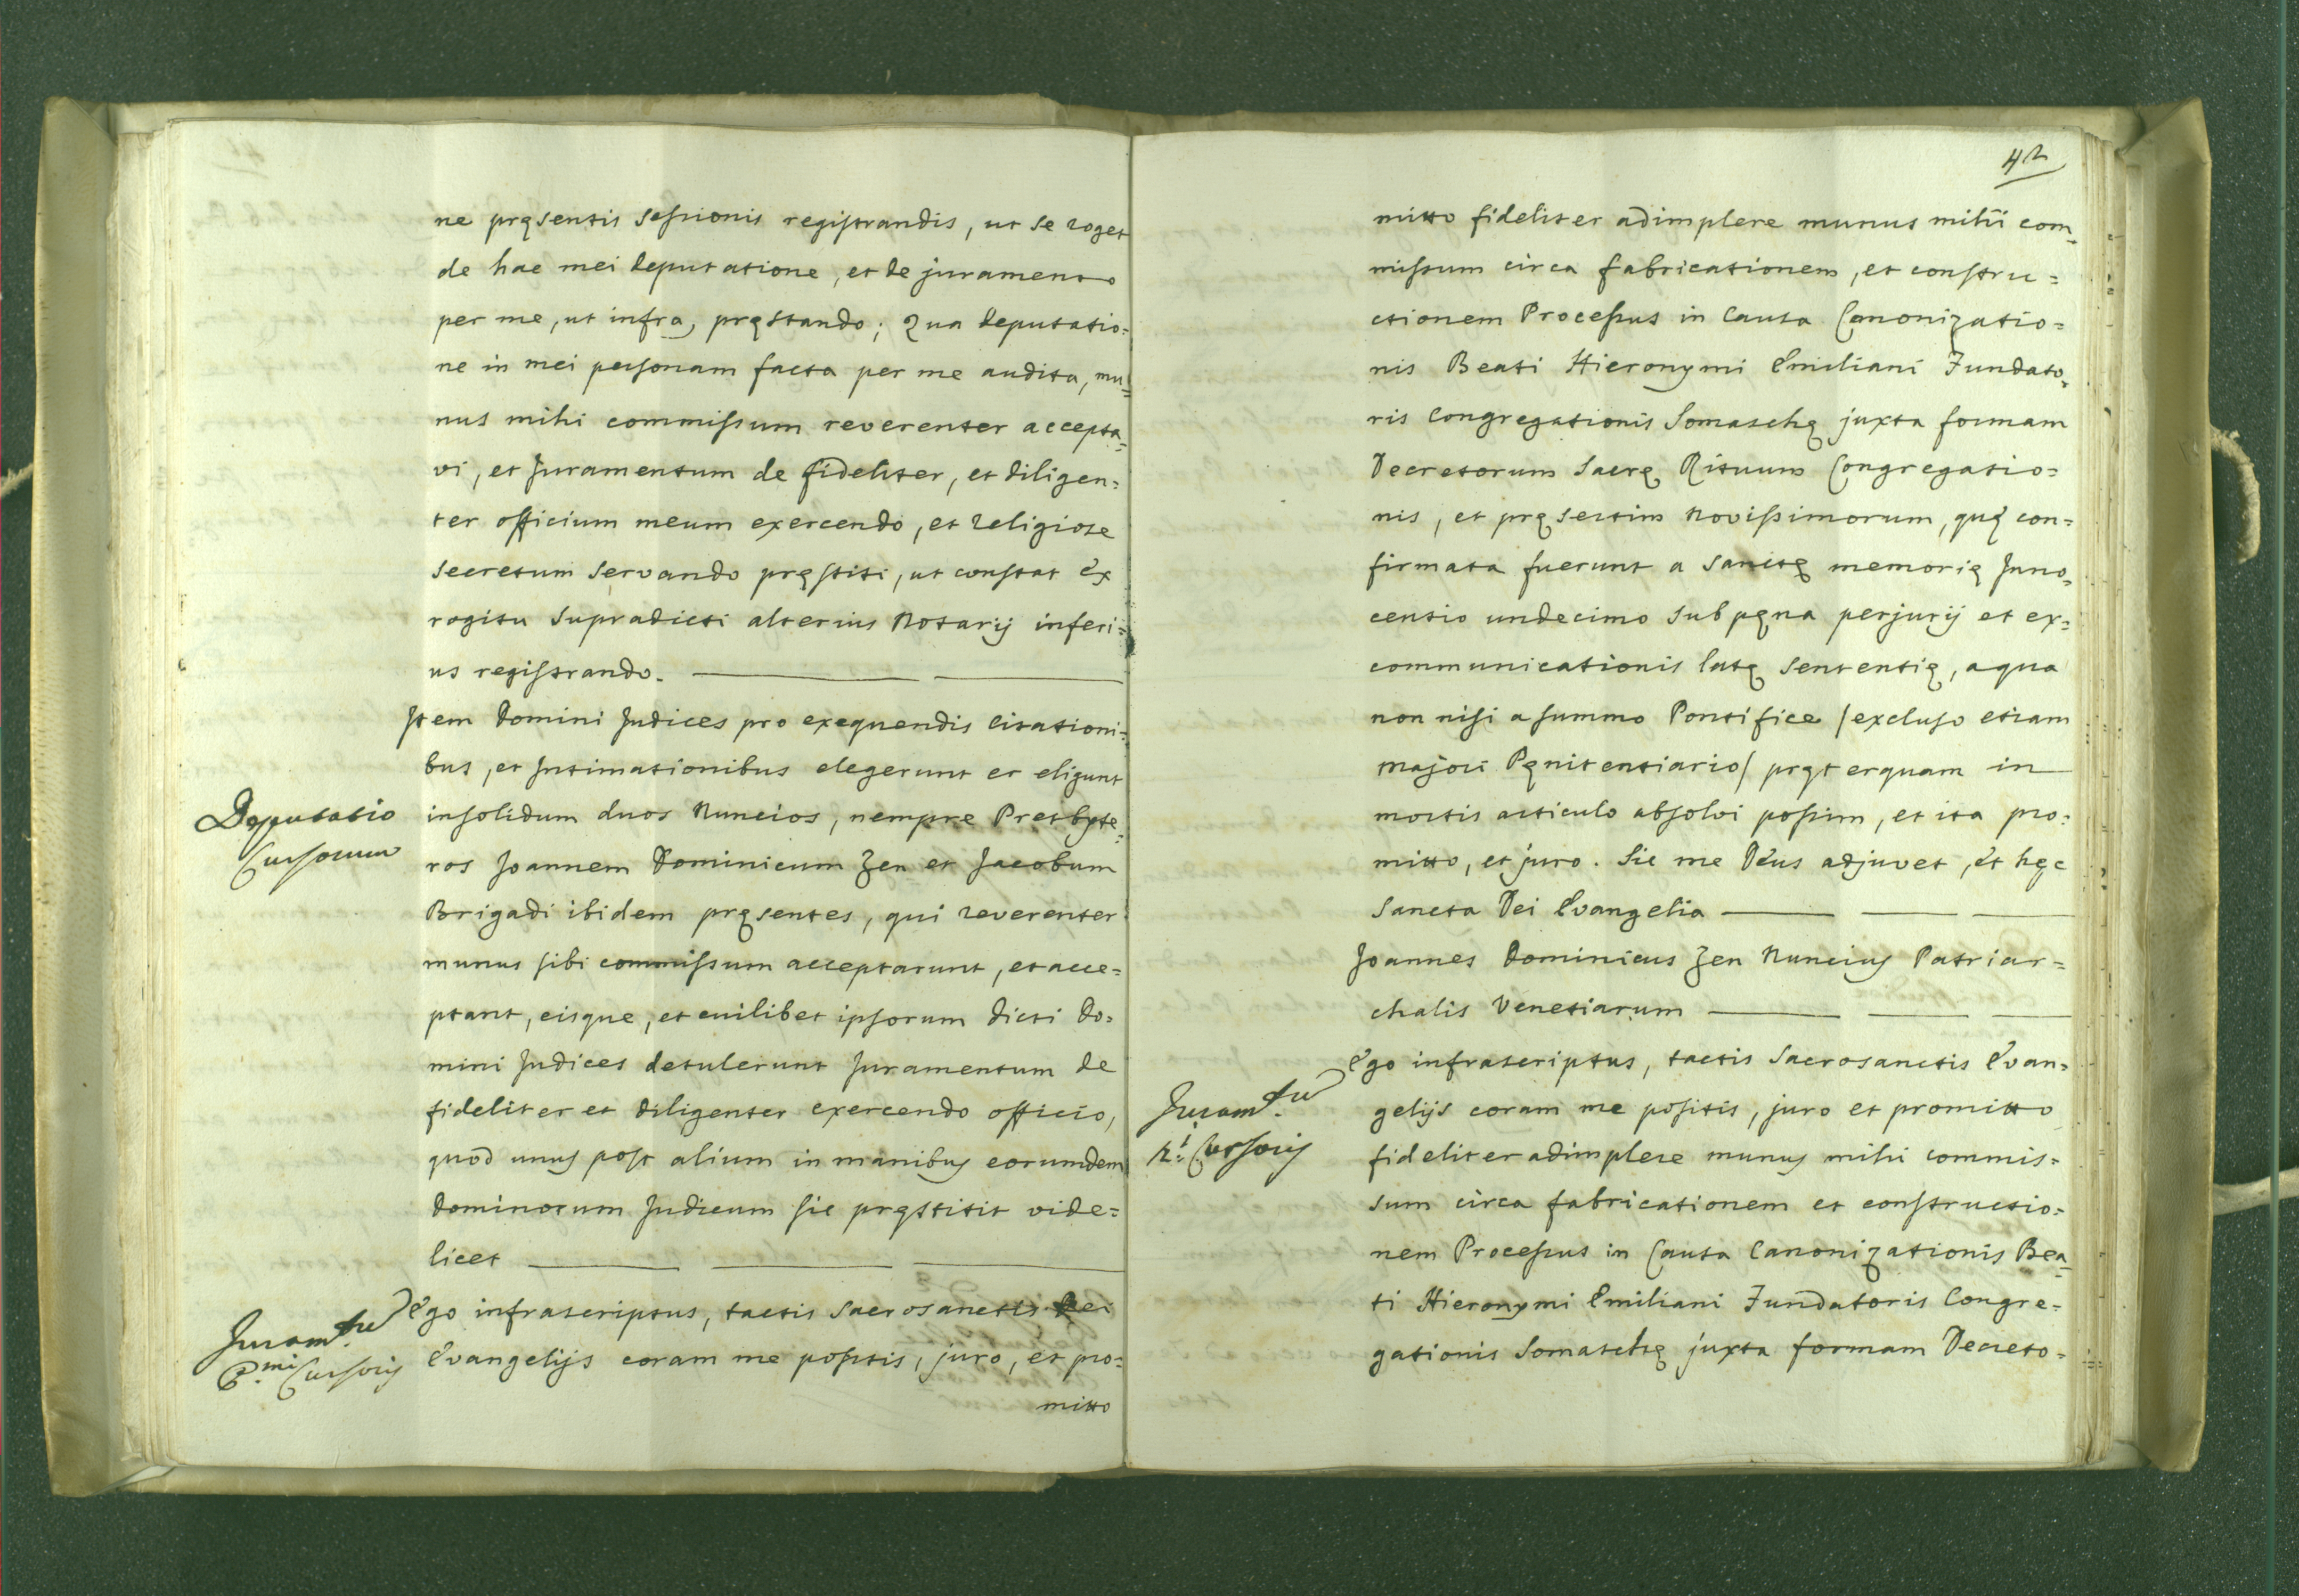 ne pręsentis sessionis registrandis, ut se roget
de hac mei deputatione, et de juramento
per me, ut infra, pręstando; qua deputatio=
ne in mei personam facta per me audita, mu=
nus mihi commissum reverenter accepta=
vi, et Juramentum de fideliter, et diligen=
ter officium meum exercendo, et religiose
secretum servando pręstiti, ut constat ex
rogitu supradicti alterius Notarij inferi=
us registrando.
Item Domini Judices pro exequendis Citationi=
bus, et Intimationibus elegerunt et eligunt
Deputatio
Cursorum
insolidum duos Nuncios, nempre Presbyte=
ros Joannem Dominicum Zen et Jacobum
Brigadi ibidem pręsentes, qui reverenter
munus sibi commissum acceptarunt, et acce=
ptant, eisque, et cuilibet ipsorum dicti Do=
mini Judices detulerunt Juramentum de
fideliter et diligenter exercendo officio,
quod unus post alium in manibus eorumdem
Dominorum Judicum sic pręstitit vide=
licet
Juram.tu
P.mi Cursoris
Ego infrascriptus, tactis sacrosanctis Dei
Evangelijs coram me positis, juro, et pro=
mitto
42
mitto fideliter adimplere munus mihi com=
missum circa fabricationem, et constru=
ctionem Processus in Causa Canonizatio=
nis Beati Hieronymi Emiliani Fundato=
ris Congregationis Somaschę juxta formam
Decretorum Sacrę Rituum Congregatio=
nis, et pręsertim novissimorum, quę con=
firmata fuerunt a sanctę memorię Inno=
centio undecimo sub pęna perjurij et ex=
communicationis latę sententię, a qua
non nisi a summo Pontifice /excluso etiam
majori Pęnitentiario/ pręterquam in
mortis articulo absolvi possim, et ita pro=
mitto, et juro. Sic me Deus adjuvet, et hęc
Sancta Dei Evangelia
Joannes Dominicus Zen Nuncius Patriar=
chalis Venetiarum
Juram.tu
2.i Cursoris
Ego infrascriptus, tactis Sacrosanctis Evan=
gelijs coram me positis, juro et promitto
fideliter adimplere munus mihi commis=
sum circa fabricationem et constructio=
nem Processus in Causa Canonizationis Bea=
ti Hieronymi Emiliani Fundatoris Congre=
gationis Somaschę juxta formam Decreto=